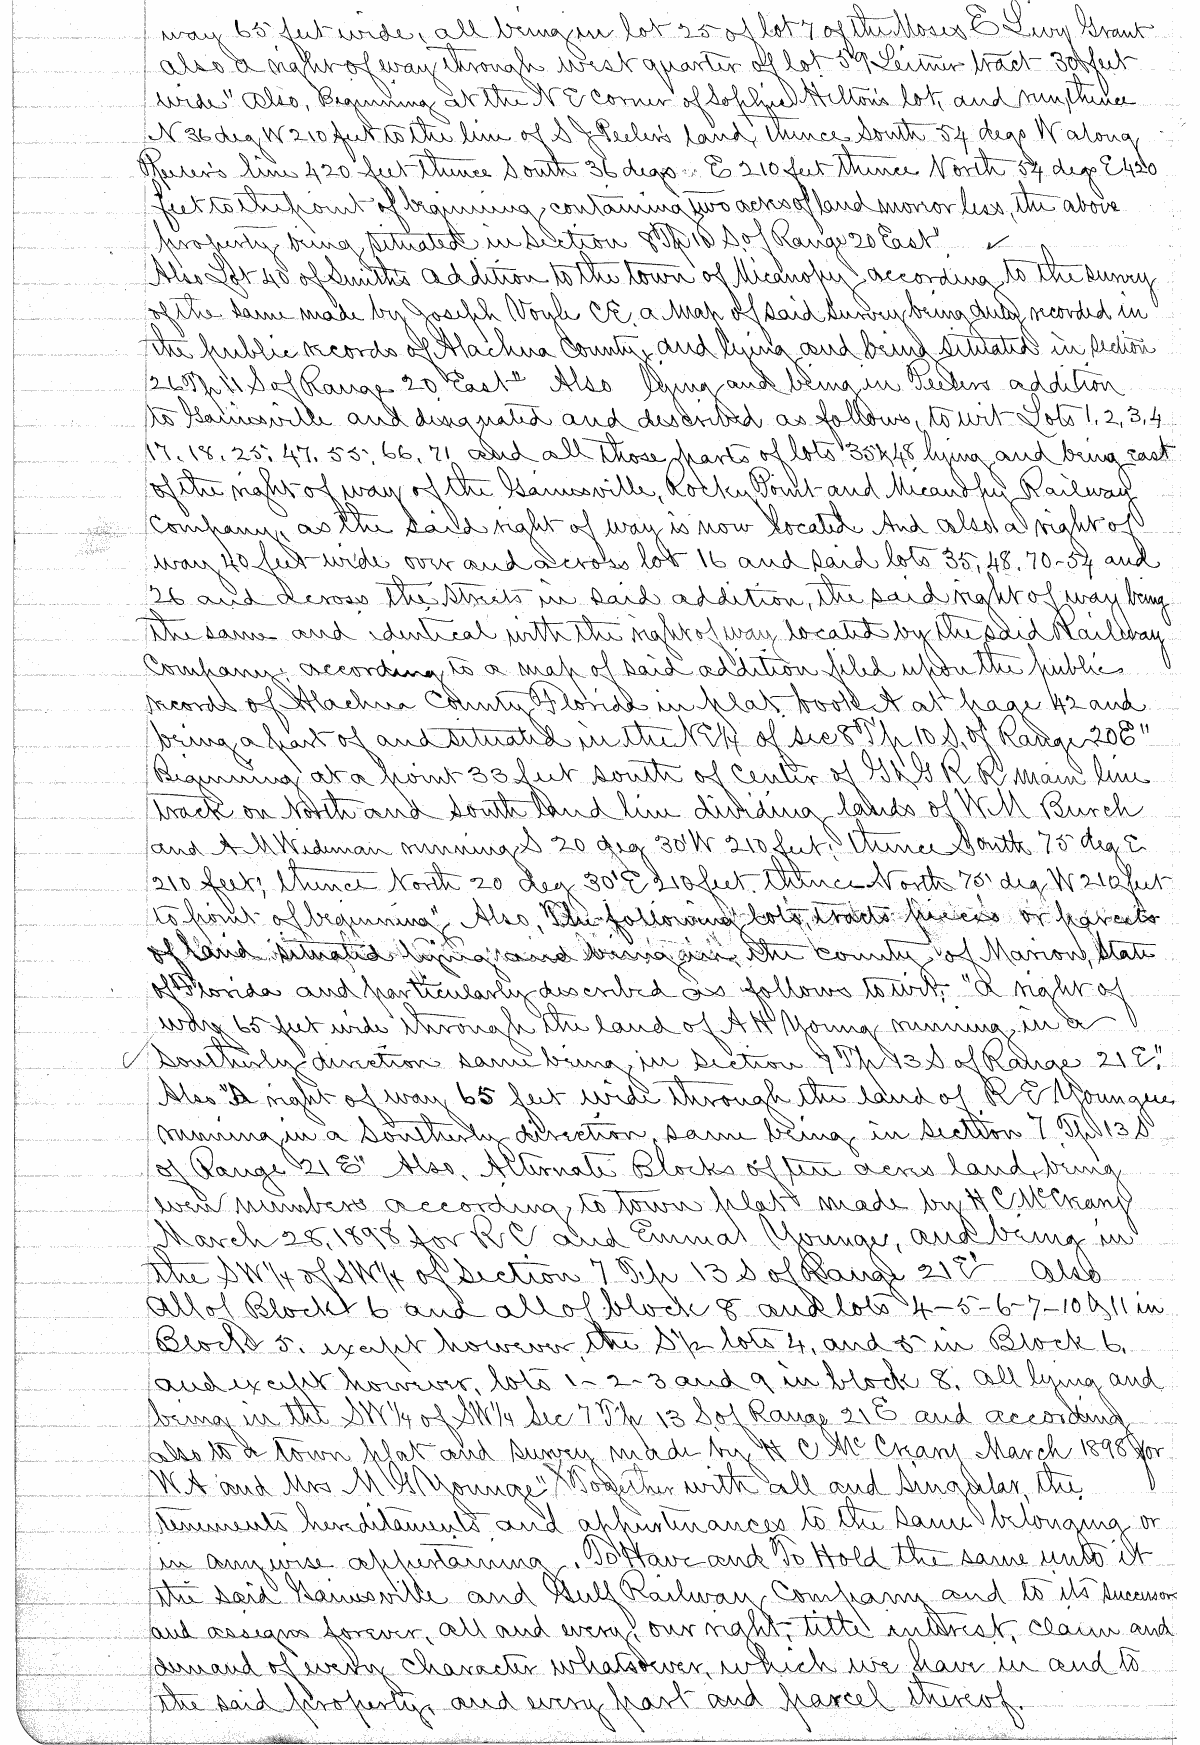 way 65 feet wide, all being in lot 25 of lot 7 of the Moses E Levy Grant
also a right of way through west quarter of lot 59 Leitner tract 30 feet
wide" Also, Beginning at the N E corner of Sophie Hilton's lot, and run thence
N 36 deg W 210 feet to the line of S J Peeler's land, thence South 54 degs W along
Peeler's line 420 feet thence South 36 degs E 210 feet thence North 54 degs E 420
feet to the point of beginning, containing two acres of land more or less, the above
property being situated in Section 8 Tp 10 S. of Range 20 East"
Also Lot 40 of Smith's Addition to the town of Micanopy according to the survey
of the same made by Joseph Voyle C.E. a Map of said Survey being duly recorded in
the public records of Alachua County, and lying and being situated in section
26 Tp 11 S of Range 20 East" Also lying and being in Peelers addition
to Gainesville and designated and described as follows, to wit Lots 1, 2, 3, 4
17, 18, 25, 47, 55, 66, 71 and all those parts of lots 35 & 48 lying and being east
of the right of way of the Gainesville, Rocky Point and Micanopy Railway
Company, as the said right of way is now located And also a right of
way 40 feet wide over and across lot 16 and said lots 35, 48, 70-54 and
26 and across the streets in said addition, the said right of way being
the same and identical with the right of way located by the said Railway
Company, according to a map of said addition filed upon the public
records of Alachua County Florida in plat book A at page 42 and
being a part of and situated in the N E 1/4 of sec 8 Tp 10 S. of Range 20 E"
Beginning at a point 33 feet south of center of G & G R R main line
track on North and South land line dividing lands of W. M Burch
and A. M Wideman running S 20 deg 30' W 210 feet; thence South 75 deg E
210 feet; thence North 20 deg 30' E 210 feet. thence North 75 deg W 210 feet
to point of beginning". Also, "The following lots, tracts pieces or parcels
of land situated lying and being in the county of Marion, State
of Florida and particularly described as follows to wit, "A right of
way 65 feet wide through the land of A H Young running in a
Southerly direction same being in section 7 Tp 13 S of Range 21 E."
Also "A right of way 65 feet wide through the land of R E Younge
running in a Southerly direction, same being in section 7 Tp 13 S
of Range 21 E" Also, Alternate Blocks of ten acres land, being
even numbers according to town plat made by H C McCreary
March 28, 1898 for R C and Emma Younge, and being in
the SW 1/4 of SW 1/4 of section 7 Tp 13 S of Range 21 E" Also
All of Block 6 and all of block 8 and lots 4-5-6-7-10 & 11 in
Block 5. except however, the S 1/2 lots 4, and 5 in Block 6,
and except however, lots 1-2-3 and 9 in block 8. all lying and
being in the SW 1/4 of SW 1/4 Sec 7 Tp 13 S. of Range 21 E and according
also to a town plat and survey made by H C McCreary March 1898 for
W A and Mrs M G Younge" Together with all and singular, the
tenements hereditaments and appurtenances to the same belonging or
in anywise appertaining. To Have and To Hold the same unto it
the said Gainesville and Gulf Railway Company and to its successors
and assigns forever, all and every, our right, title interest, claim and
demand of every character whatsoever, which we have in and to
the said property, and every part and parcel thereof.